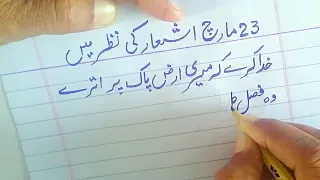 23 مارچ اشعار کی نظر میں
خدا کرے کہ میری ارض پاک پر اترے
وہ فصل